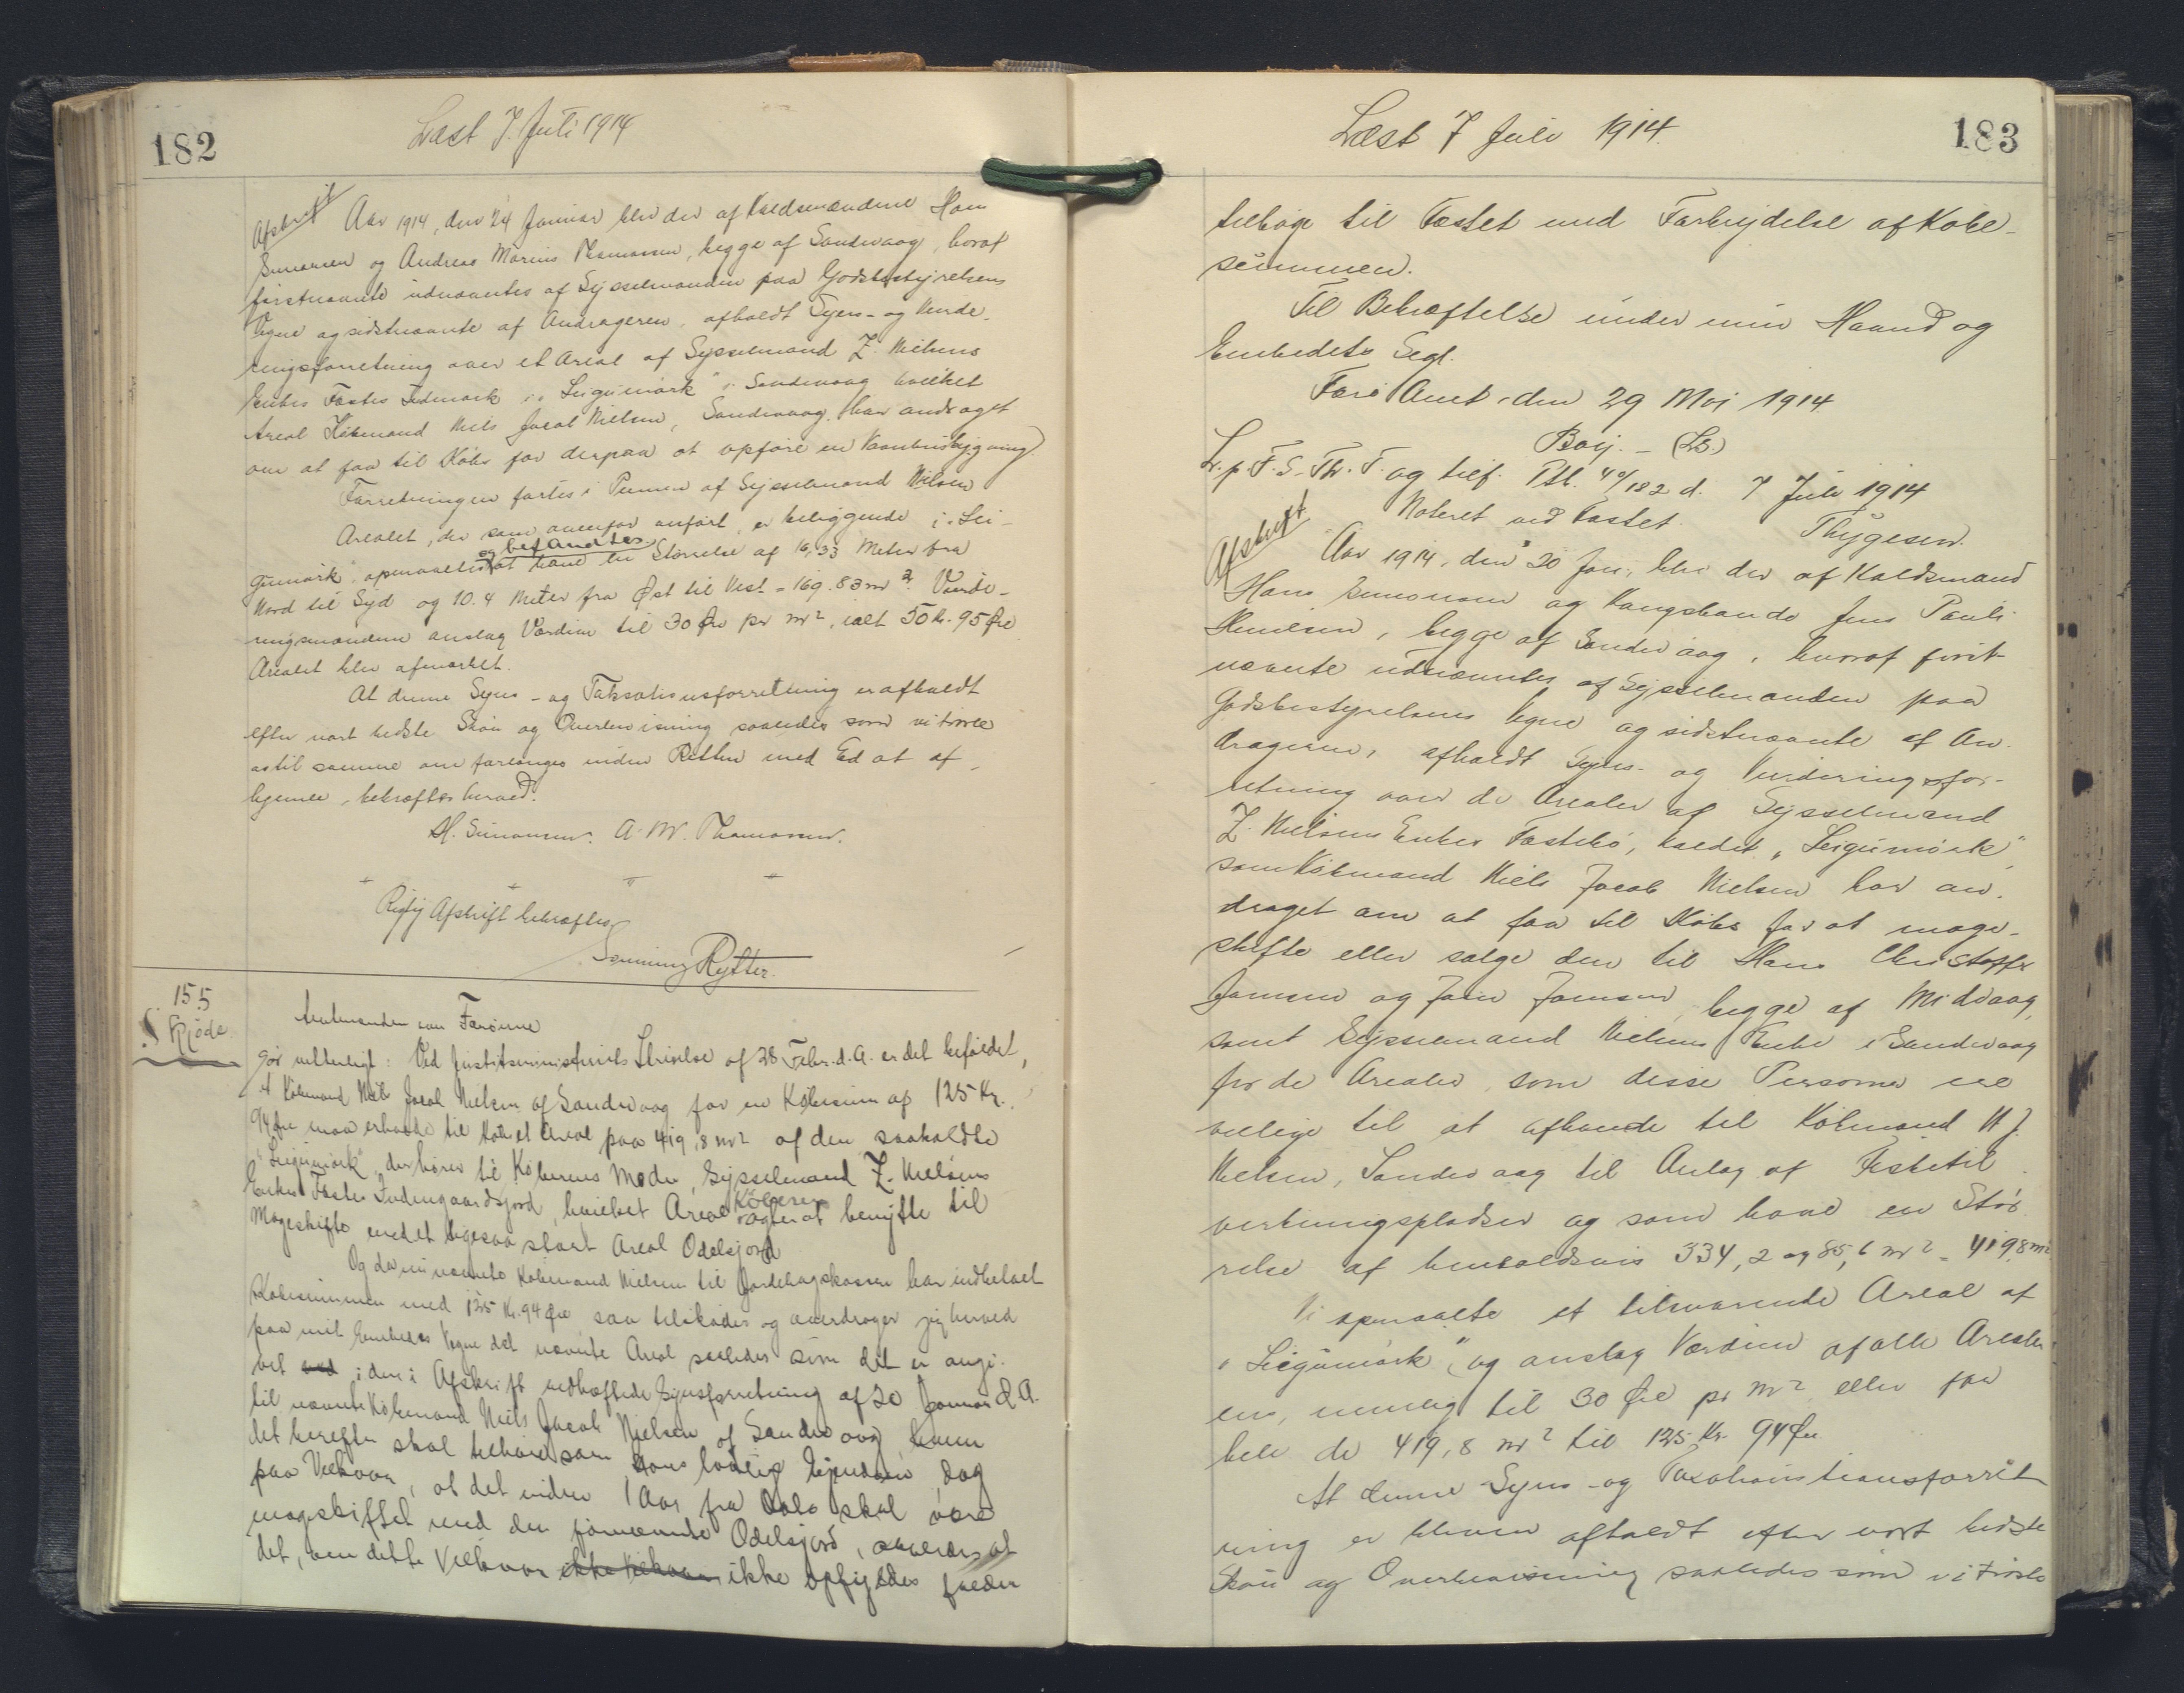 182
Læst 7. Juli 1914
Afskrift Aar 1914, den 24 Januar blev der af Vurdsmændene Hans
Simonsen og Andreas Marius Thomassen, begge af Sandevaag, hvoraf
førstnævnte udnævntes af Sysselmanden paa Godsbestyrelsens
Vegne og sidstnævnte af Andrageren, afholdt Syns- og Vurde-
ringsforretning over et Areal af Sysselmand Z. Nielsens
Enkes Fæstes Indmark i "Leigumørk" i Sandevaag hvilket
Areal Købmand Niels Jacob Nielsen, Sandevaag har andraget
om at faa til Købs for derpaa at opføre en Vaaningsbygning.
Forretningen førtes i Pennen af Sysselmand Nielsen
Arealet, der som ovenfor anført, er beliggende i "Lei-
gumørk", opmaaltes og befandtes at have en Størrelse af 16,33 Meter fra
Nord til Syd og 10.4 Meter fra Øst til Vest = 169.83 m². Vurde-
ringsmændene anslog Værdien til 30 Øre pr m², ialt 50 Kr. 95 Øre
Arealet blev afmærket.
At denne Syns- og Taksationsforretning er afholdt
efter vort bedste Skøn og Overbevisning saaledes som vi trøste
os til samme om forlanges inden Retten med Ed at af-
hjemle, bekræftes herved.
H. Simonsen. A. M. Thomassen.
Rigtig Afskrift bekræftes
Rytter.
155
Skjøde
Amtmanden over Færøerne
gør vitterligt: Ved Justitsministeriets Skrivelse af 28 Febr. d.A. er det bifaldet,
at Købmand Niels Jacob Nielsen af Sandevaag for en Købesum af 125 Kr.
94 Øre maa erholde til Købs et Areal paa 419,8 m² af den saakaldte
"Leigumørk", der hører til Køberens Moder, Sysselmand Z. Nielsens
Enkes Fæstes Indengaardsjord, hvilket Areal Køberen agter at benytte til
Mageskifte med et ligesaa stort Areal Odelsjord
Og da nu nævnte Købmand Nielsen til Jordebogskassen har indbetalt
Købesummen med 125 Kr. 94 Øre saa tilskøder og overdrager jeg herved
paa mit Embedes Vegne det nævnte Areal saaledes som det er angi-
vet ved i den i Afskrift vedhæftede Synsforretning af 20 Januar d.A.
til nævnte Købmand Niels Jacob Nielsen af Sandevaag, hvem
det herefter skal tilhøre som Hans lovlige Ejendom, dog
paa Vilkaar, at det inden 1 Aar fra Dato skal være
mageskiftet med den fornævnte Odelsjord, saaledes at
det, om dette Vilkaar ikke Vilkaar ikke opfyldes falder
Læst 7 Juli 1914.
183
tilbage til Fæstet med Fortabelse af Købe-
summen.
Til Bekræftelse under min Haand og
Embedets Segl.
Færø Amt, den 29 Maj 1914
(LS)
L. p. F. S. Th. T. og tilf. Ptb. 40/182 d. 7 Juli 1914
Noteret ved Fæstet.
Thygesen.
Afskrift
Aar 1914, den 20 Jan., blev der af Vurdsmand
Hans Simonsen og Kongsbonde Jens Pauli
Henriksen, begge af Sandevaag, hvoraf først-
nævnte udnævntes af Sysselmanden paa
Godsbestyrelsens Vegne og sidstnævnte af An-
drageren, afholdt Syns- og Vurderingsfor-
retning over de Arealer af Sysselmand
Z. Nielsens Enkes Fæstebø, kaldet "Leigumørk",
som Købmand Niels Jacob Nielsen har an-
draget om at faa til Købs for at mage-
skifte eller sælge den til Hans Christoffer
Joensen og Joen Joensen begge af Midvaag,
samt Sysselmand Nielsens Enke i Sandevaag
for de Arealer, som disse Personer ere
villige til at afhænde til Købmand N J.
Nielsen, Sandevaag til Anlæg af Fisketil
virkningspladser og som have en Stør
relse af henholdsvis 334,2 og 85,6 m² = 419,8 m²
Vi opmaalte et tilsvarende Areal af
"Leigumørk", og anslog Værdien af alle Arealer
ens, nemlig til 30 Øre pr m² eller for
hele de 419,8 m² til 125 Kr. 94 Øre
At denne Syns- og Taxationsforret
ning er bleven afholdt efter vort bedste
Skøn og Overbevisning saaledes som vi trøste